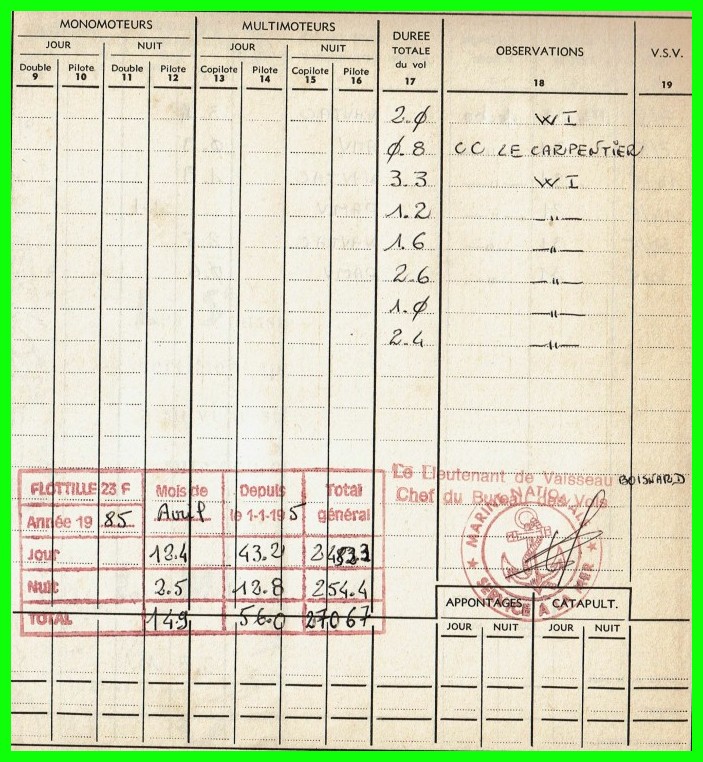 MONOMOTEURS MULTIMOTEURS DUREE TOTALE du vol OBSERVATIONS V.S.V.
JOUR NUIT JOUR NUIT
Double Pilote Double Pilote Copilote Pilote Copilote Pilote
9 10 11 12 13 14 15 16 17 18 19
2.0 W I
0.8 CC LE CARPENTIER
3.3 W I
1.2 —"—
1.6 —"—
2.6 —"—
1.0 —"—
2.4 —"—
Le Lieutenant de Vaisseau BOISNARD
Chef du Bureau des Vols
MARINE NATIONALE
SERVICE A LA MER
FLOTTILLE 23 F Mois de Depuis Total
Année 19 85 Avril le 1-1-19 5 général
Jour 12.4 43.2
Nuit 2.5 12.8 254.4
TOTAL 14.9 56.0 2706.7
APPONTAGES CATAPULT.
JOUR NUIT JOUR NUIT